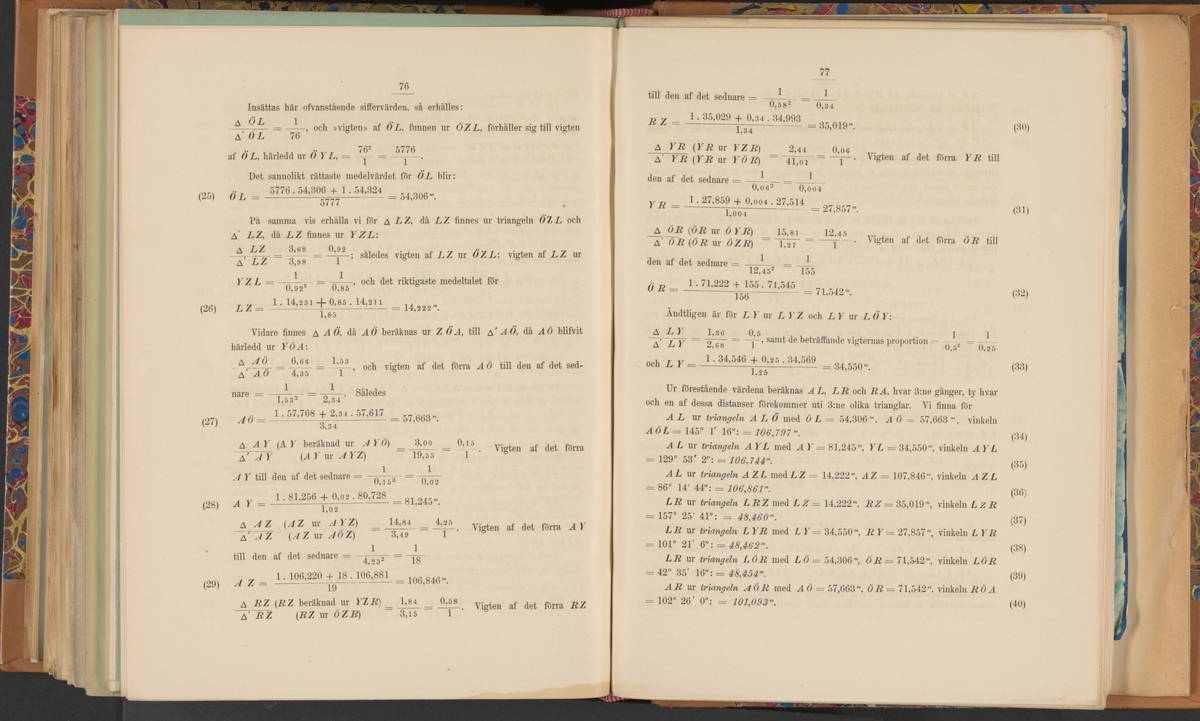 76
Insättas här ofvanstående siffervärden, så erhålles:
Δ ÖL / Δ′ ÖL = 1 / 76, och »vigten» af ÖL, funnen ur ÖZL, förhåller sig till vigten
af ÖL, härledd ur ÖYL, = 76² / 1 = 5776 / 1.
Det sannolikt rättaste medelvärdet för ÖL blir:
(25) ÖL = 5776 . 54,306 + 1 . 54,324 / 5777 = 54,306ᵐ.
På samma vis erhålla vi för Δ LZ, då LZ finnes ur triangeln ÖZL och
Δ′ LZ, då LZ finnes ur YZL:
Δ LZ / Δ′ LZ = 3,68 / 3,98 = 0,92 / 1; således vigten af LZ ur ÖZL: vigten af LZ ur
YZL = 1 / 0,92² = 1 / 0,85, och det riktigaste medeltalet för
(26) LZ = 1 . 14,231 + 0,85 . 14,211 / 1,85 = 14,222ᵐ.
Vidare finnes Δ AÖ, då AÖ beräknas ur ZÖA, till Δ′ AÖ, då AÖ blifvit
härledd ur YÖA:
Δ AÖ / Δ′ AÖ = 6,64 / 4,35 = 1,53 / 1, och vigten af det förra AÖ till den af det sed-
nare = 1 / 1,53² = 1 / 2,34. Således
(27) AÖ = 1 . 57,768 + 2,34 . 57,617 / 3,34 = 57,663ᵐ.
Δ AY (AY beräknad ur AYÖ) / Δ′ AY (AY ur AYZ) = 3,00 / 19,55 = 0,15 / 1. Vigten af det förra
AY till den af det sednare = 1 / 0,15² = 1 / 0,02
(28) AY = 1 . 81,256 + 0,02 . 80,728 / 1,02 = 81,245ᵐ.
Δ AZ (AZ ur AYZ) / Δ′ AZ (AZ ur AÖZ) = 14,84 / 3,49 = 4,25 / 1. Vigten af det förra AY
till den af det sednare = 1 / 4,25² = 1 / 18
(29) AZ = 1 . 106,220 + 18 . 106,881 / 19 = 106,846ᵐ.
Δ RZ (RZ beräknad ur YZR) / Δ′ RZ (RZ ur ÖZR) = 1,84 / 3,15 = 0,58 / 1. Vigten af det förra RZ
77
till den af det sednare = 1 / 0,58² = 1 / 0,34
RZ = 1 . 35,029 + 0,34 . 34,993 / 1,34 = 35,019ᵐ. (30)
Δ YR (YR ur YZR) / Δ′ YR (YR ur YÖR) = 2,44 / 41,01 = 0,06 / 1. Vigten af det förra YR till
den af det sednare = 1 / 0,06² = 1 / 0,004
YR = 1 . 27,859 + 0,004 . 27,514 / 1,004 = 27,857ᵐ. (31)
Δ ÖR (ÖR ur ÖYR) / Δ′ ÖR (ÖR ur ÖZR) = 15,81 / 1,27 = 12,45 / 1. Vigten af det förra ÖR till
den af det sednare = 1 / 12,45² = 1 / 155
ÖR = 1 . 71,222 + 155 . 71,545 / 156 = 71,542ᵐ. (32)
Ändtligen är för LY ur LYZ och LY ur LÖY:
Δ LY / Δ′ LY = 1,36 / 2,68 = 0,5 / 1, samt de beträffande vigternas proportion = 1 / 0,5² = 1 / 0,25
och LY = 1 . 34,546 + 0,25 . 34,569 / 1,25 = 34,550ᵐ. (33)
Ur förestående värdena beräknas AL, LR och RA, hvar 3:ne gånger, ty hvar
och en af dessa distanser förekommer uti 3:ne olika trianglar. Vi finna för
AL ur triangeln ALÖ med ÖL = 54,306ᵐ, AÖ = 57,663ᵐ, vinkeln
AÖL = 145° 1′ 16″: = 106,797ᵐ. (34)
AL ur triangeln AYL med AY = 81,245ᵐ, YL = 34,550ᵐ, vinkeln AYL
= 129° 53′ 2″: = 106,744ᵐ. (35)
AL ur triangeln AZL med LZ = 14,222ᵐ, AZ = 107,846ᵐ, vinkeln AZL
= 86° 14′ 44″: = 106,861ᵐ. (36)
LR ur triangeln LRZ med LZ = 14,222ᵐ, RZ = 35,019ᵐ, vinkeln LZR
= 157° 25′ 41″: = 48,460ᵐ. (37)
LR ur triangeln LYR med LY = 34,550ᵐ, RY = 27,857ᵐ, vinkeln LYR
= 101° 21′ 6″: = 48,462ᵐ. (38)
LR ur triangeln LÖR med LÖ = 54,306ᵐ, ÖR = 71,542ᵐ, vinkeln LÖR
= 42° 35′ 16″: = 48,454ᵐ. (39)
AR ur triangeln AÖR med AÖ = 57,663ᵐ, ÖR = 71,542ᵐ, vinkeln RÖA
= 102° 26′ 0″: = 101,093ᵐ. (40)